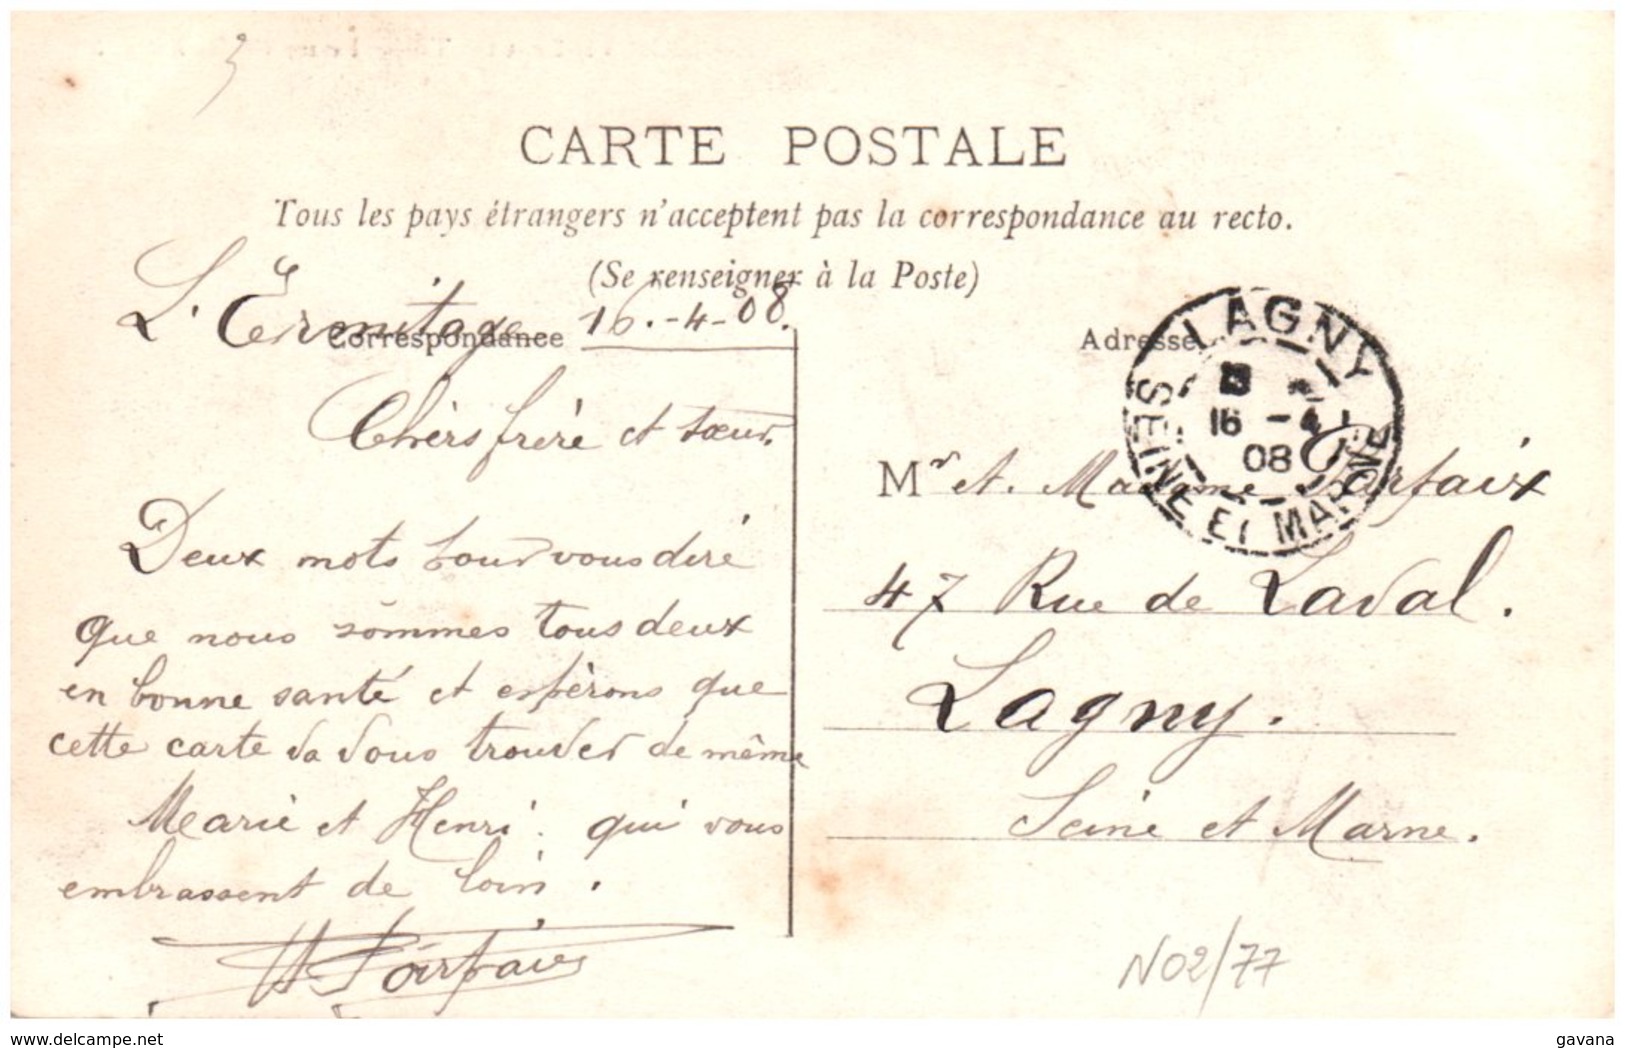 CARTE POSTALE
Tous les pays étrangers n'acceptent pas la correspondance au recto.
(Se renseigner à la Poste)
L'Ermitage 16.-4-08.
Correspondance
Chers frère et sœur.
Deux mots pour vous dire
que nous sommes tous deux
en bonne santé et espérons que
cette carte va vous trouver de même
Marie et Henri. qui vous
embrassent de loin.
H Parfaix
Adresse
LAGNY
16 -4
08
SEINE ET MARNE
Mr et. Madame Parfaix
47 Rue de Laval.
Lagny.
Seine et Marne.
N02/77
delcampe.net
gavana